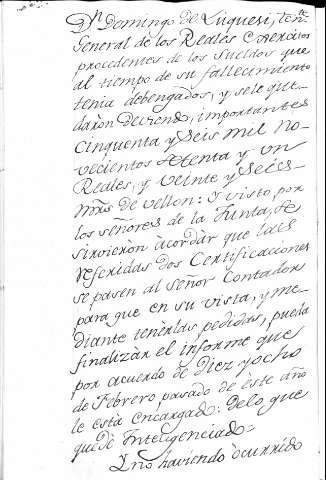 Dn. Domingo de Luquesi, tente.
General de los Reales Exercitos
procedentes de los sueldos que
al tiempo de su fallecimiento
tenia debengados, y se le que-
daron deviendo, importantes
Cinquenta y Seis mil No-
vecientos Setenta y un
Reales, y veinte y seis
mrs. de vellon: Y visto por
los señores de la Junta, se
sirvieron acordàr que las
referidas dos Certificaciones
se pasen al señor Contador
para que en su vista, y me-
diante tenerlas pedidas, pueda
finalizar el informe que
por acuerdo de Diez y ocho
de Febrero pasado de este año
le està encargado: de lo que
quedò Inteligenciado=
Y no haviendo ocurrido